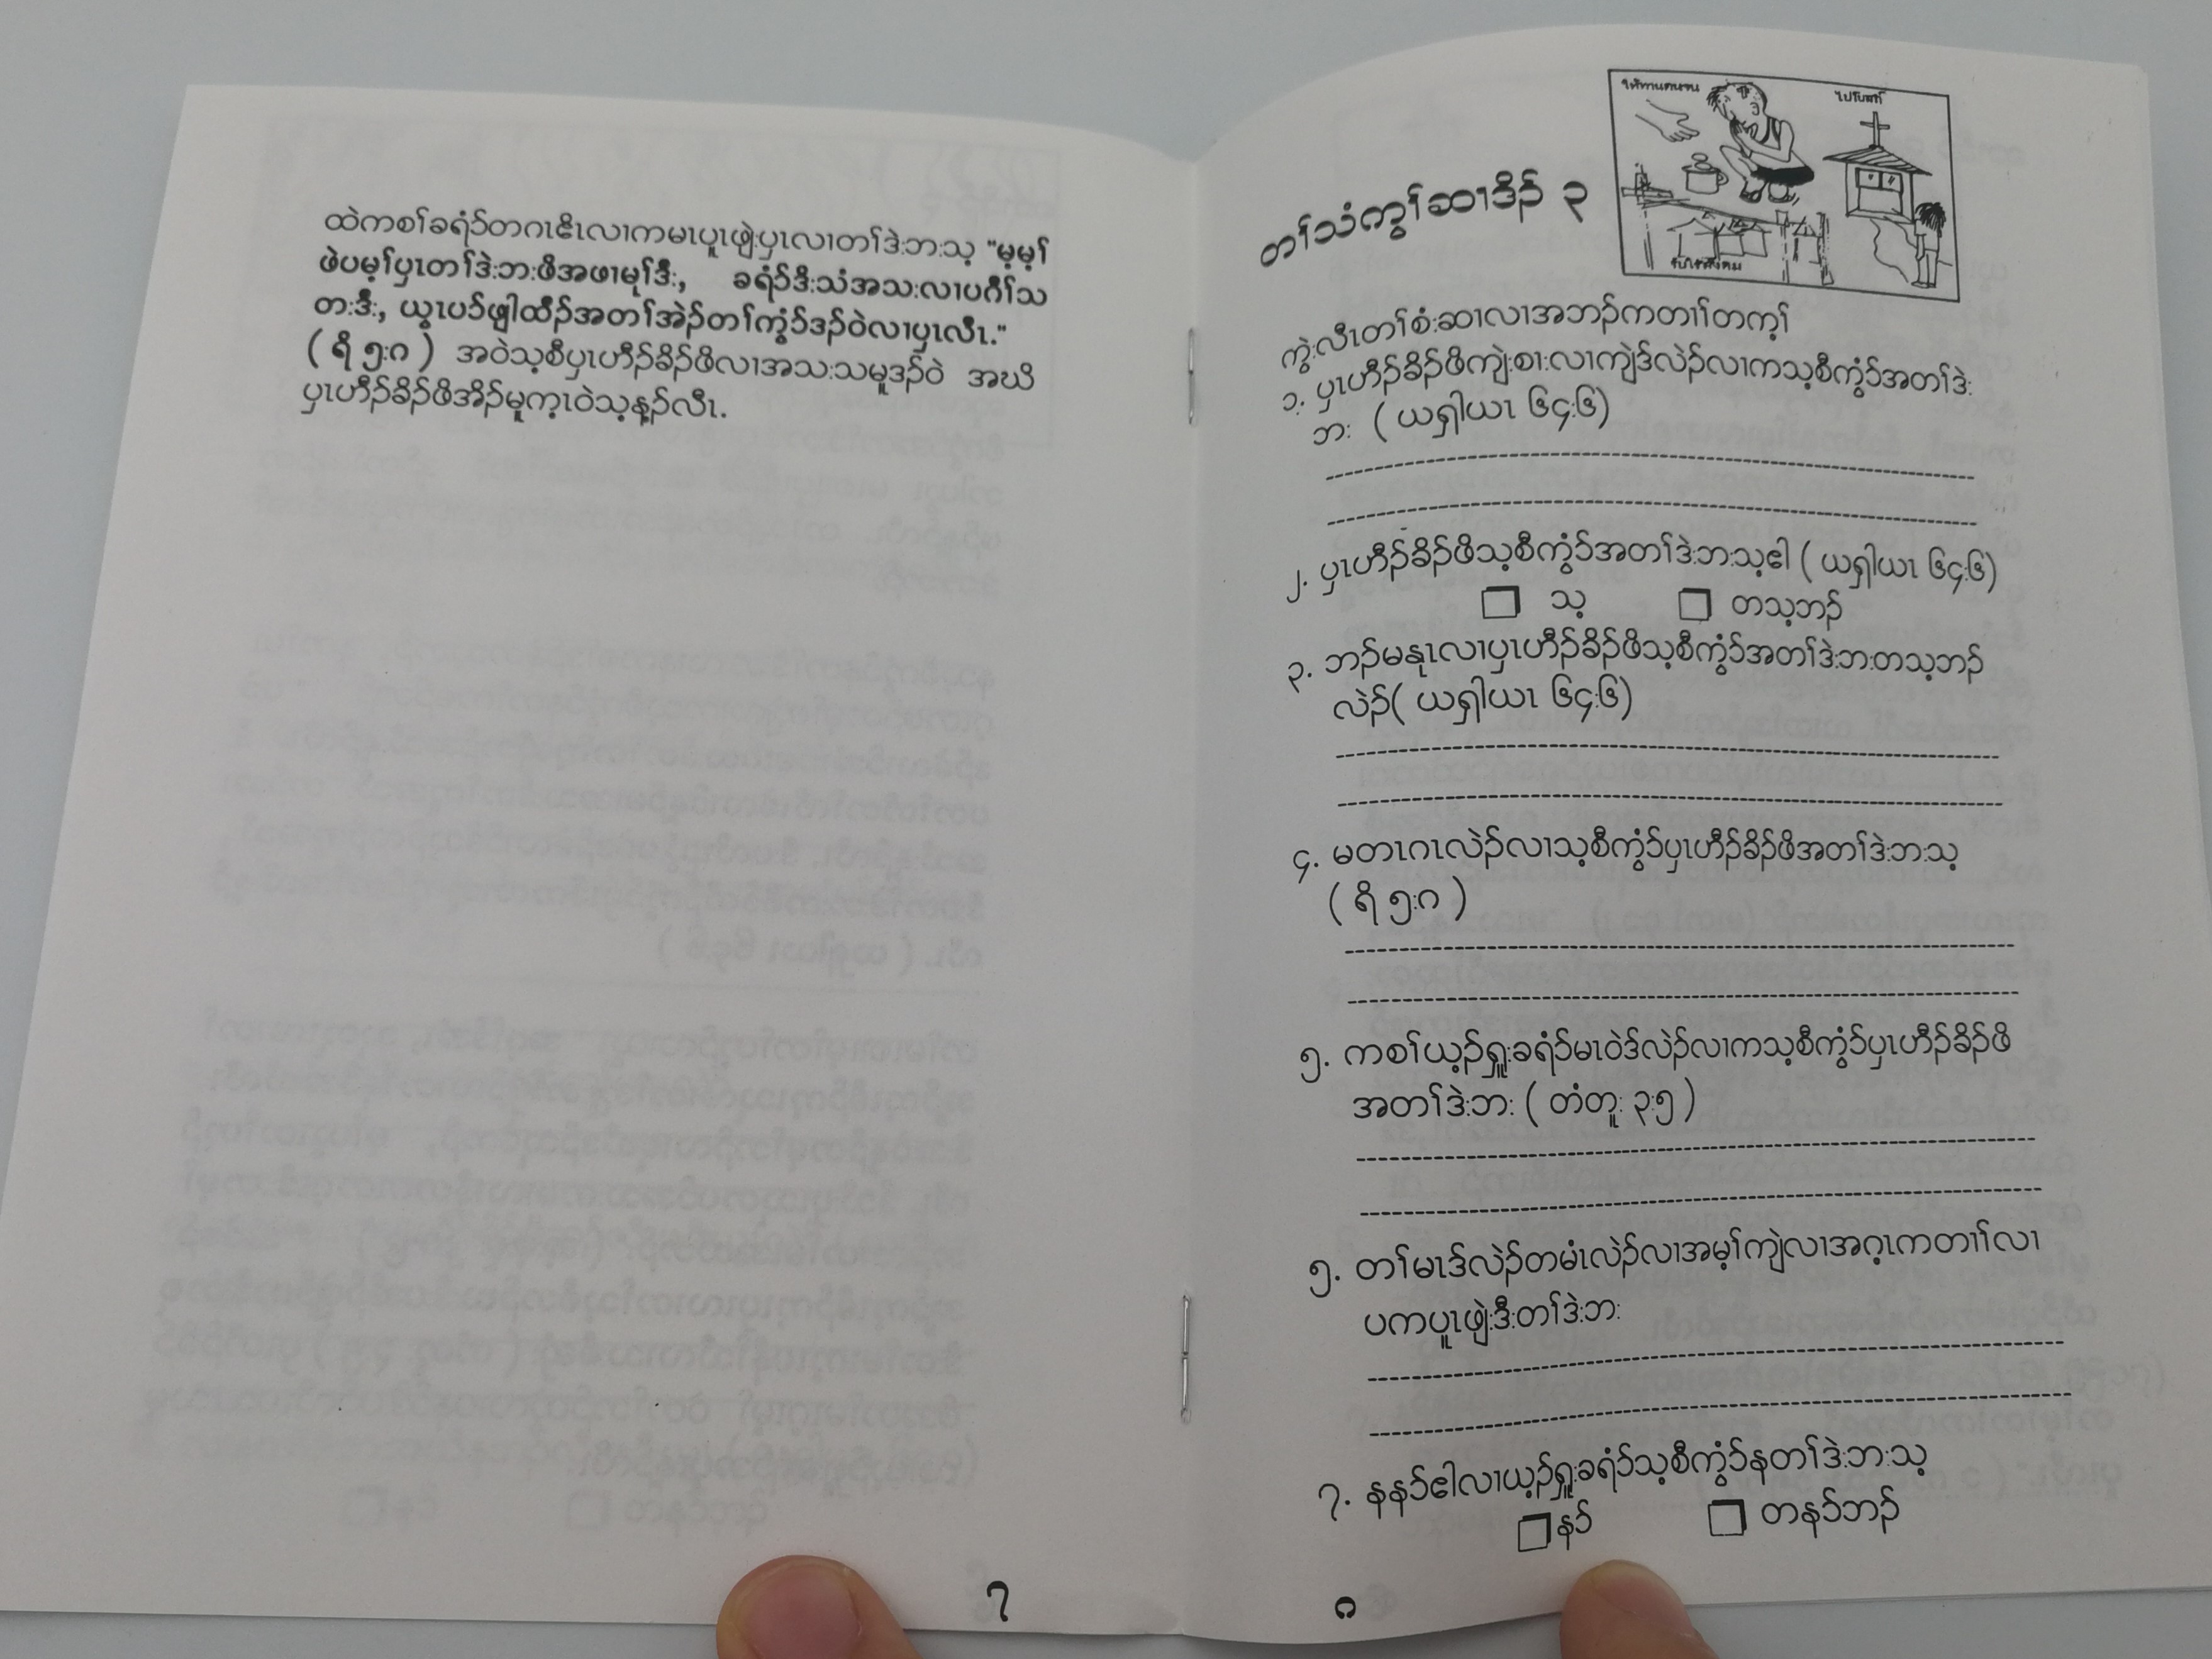 ထဲကစၢ်ခရံာ်တဂၤဧိၤလၢကမၤပူၤဖျဲးပှၤလၢတၢ်ဒဲးဘးသ့ "မ့မ့ၢ်
ဖဲပမ့ၢ်ပှၤတၢ်ဒဲးဘးဖိအဖၢမုၢ်ဒီး, ခရံာ်ဒိးသံအသးလၢပဂီၢ်သ
တးဒီး, ယွၤပာ်ဖျါထီၣ်အတၢ်အဲၣ်တၢ်ကွံာ်ဒၣ်ဝဲလၢပှၤလီၤ."
( ရိ ၅:၈ ) အဝဲသ့စီပှၤဟီၣ်ခိၣ်ဖိလၢအသးသမူဒၣ်ဝဲ အဃိ
ပှၤဟီၣ်ခိၣ်ဖိအိၣ်မူက့ၤဝဲသ့န့ၣ်လီၤ.
၇
ให้ทานคนจน
ไปโบสถ์
တၢ်သံကွၢ်ဆၢဒိၣ် ၃
ကွဲးလီၤတၢ်စံးဆၢလၢအဘၣ်ကတၢၢ်တက့ၢ်
၁. ပှၤဟီၣ်ခိၣ်ဖိကျဲးစၢးလၢကျဲဒ်လဲၣ်လၢကသ့စီကွံာ်အတၢ်ဒဲး
ဘး ( ယရှါယၤ ၆၄:၆)
၂. ပှၤဟီၣ်ခိၣ်ဖိသ့စီကွံာ်အတၢ်ဒဲးဘးသ့ဧါ ( ယရှါယၤ ၆၄:၆)
သ့ တသ့ဘၣ်
၃. ဘၣ်မနုၤလၢပှၤဟီၣ်ခိၣ်ဖိသ့စီကွံာ်အတၢ်ဒဲးဘးတသ့ဘၣ်
လဲၣ်( ယရှါယၤ ၆၄:၆)
၄. မတၤဂၤလဲၣ်လၢသ့စီကွံာ်ပှၤဟီၣ်ခိၣ်ဖိအတၢ်ဒဲးဘးသ့
( ရိ ၅:၈ )
၅. ကစၢ်ယ့ၣ်ရှူးခရံာ်မၤဝဲဒ်လဲၣ်လၢကသ့စီကွံာ်ပှၤဟီၣ်ခိၣ်ဖိ
အတၢ်ဒဲးဘး ( တံတူး ၃:၅ )
၅. တၢ်မၤဒ်လဲၣ်တမံၤလဲၣ်လၢအမ့ၢ်ကျဲလၢအဂ့ၤကတၢၢ်လၢ
ပကပူၤဖျဲးဒီးတၢ်ဒဲးဘး
၇. နနာ်ဧါလၢယ့ၣ်ရှူးခရံာ်သ့စီကွံာ်နတၢ်ဒဲးဘးသ့
နာ် တနာ်ဘၣ်
၈